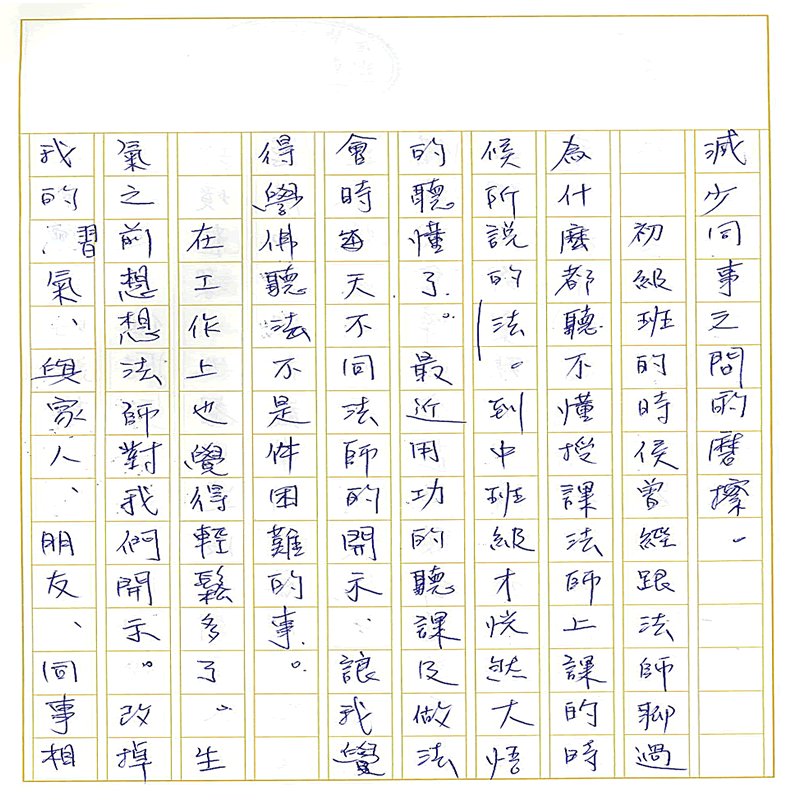 減少同事之間的磨擦。
初級班的時候曾經跟法師聊過
為什麼都聽不懂授課法師上課的時
候所說的法。到中班級才恍然大悟
的聽懂了。最近用功的聽課及做法
會時每天不同法師的開示、讓我覺
得學佛聽法不是件困難的事。
在工作上也覺得輕鬆多了。生
氣之前想想法師對我們開示。改掉
我的習氣、與家人、朋友、同事相